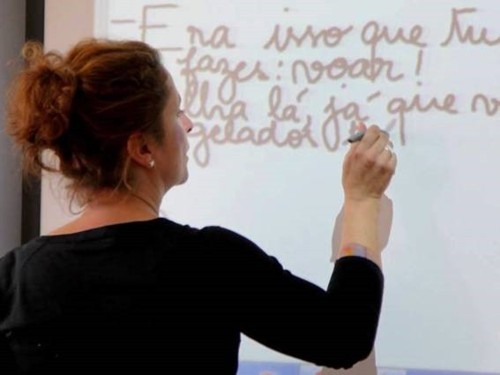 -Era isso que tu
fazes: voar!
Olha lá, já que v
gelador